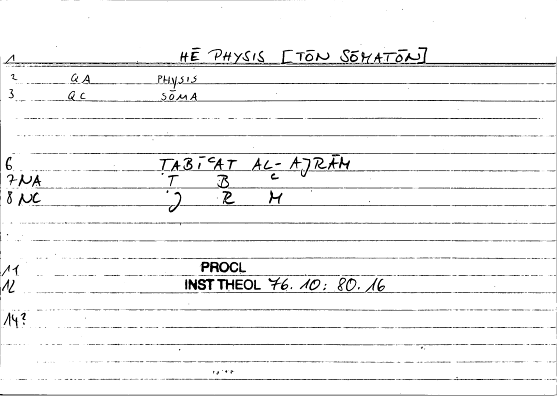 1 HĒ PHYSIS [TŌN SŌMATŌN]
2 QA PHYSIS
3 QC SŌMA
6 TABĪʿAT AL-AJRĀM
7 NA T B ʿ
8 NC J R M
11 PROCL
12 INST THEOL 76.10; 80.16
14?